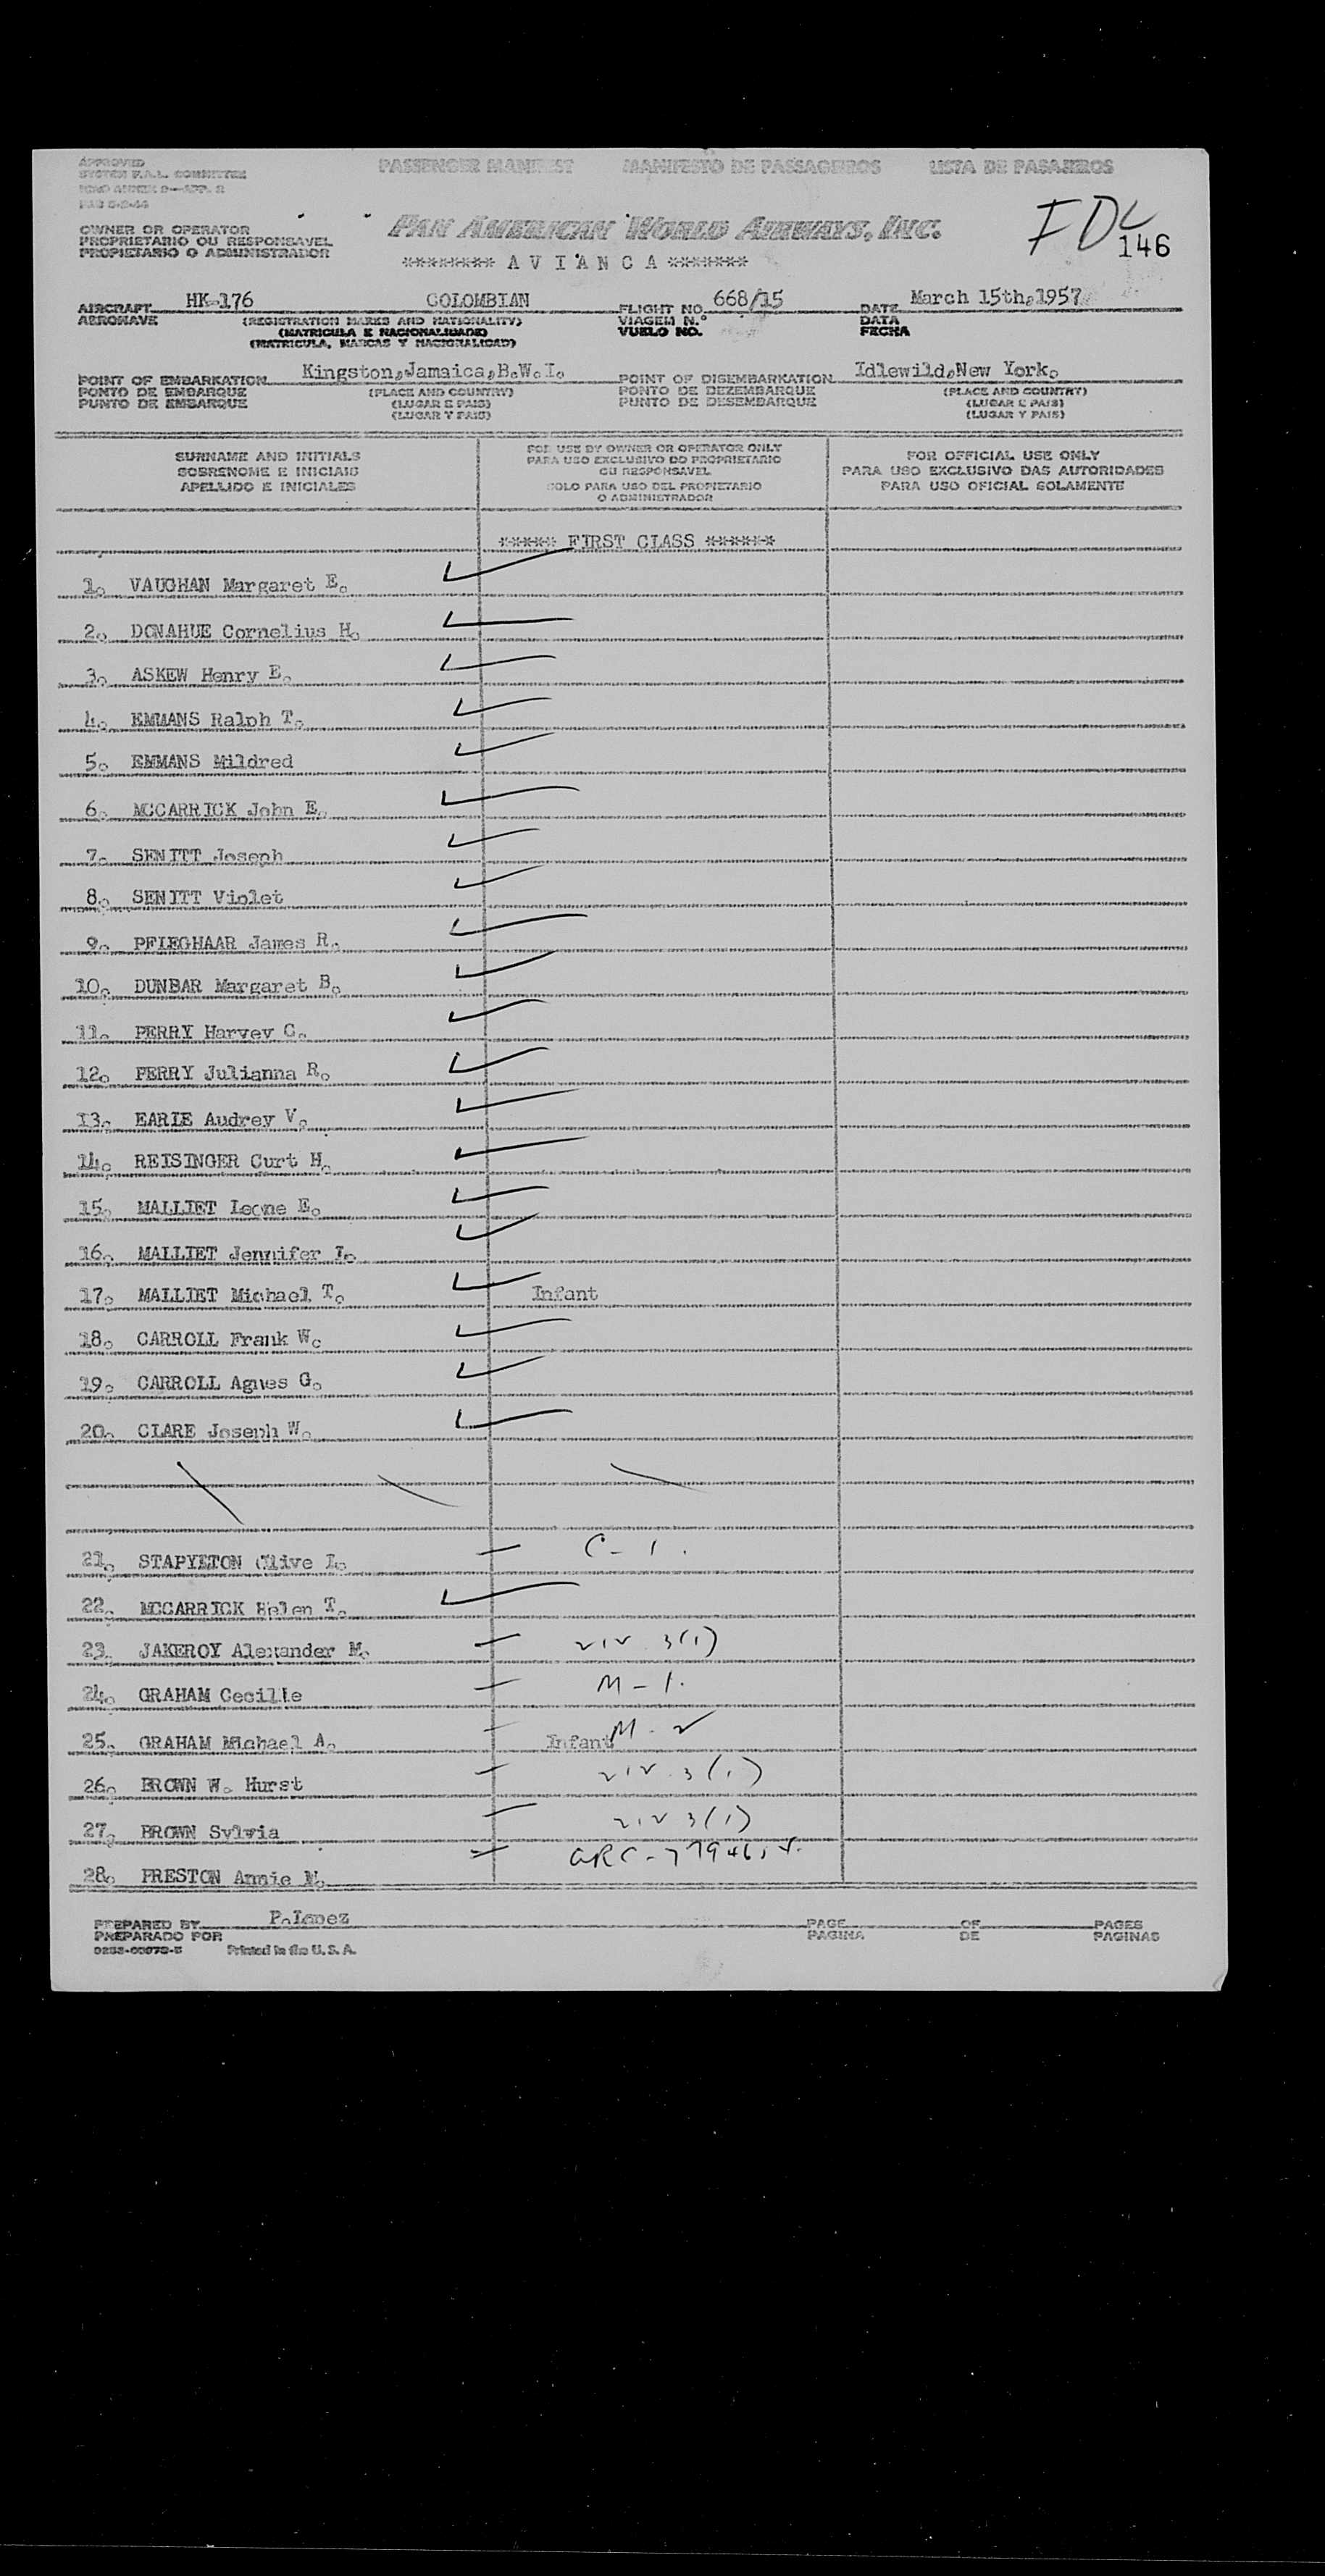 APPROVED
SYSTEM F.A.L. COMMITTEE
ICAO ANNEX 9—APP. 2
PASSENGER MANIFEST MANIFESTO DE PASSAGEIROS LISTA DE PASAJEROS
OWNER OR OPERATOR
PROPRIETARIO OU RESPONSAVEL
PROPIETARIO O ADMINISTRADOR
PAN AMERICAN WORLD AIRWAYS, INC.
146
******** A V I A N C A *******
AIRCRAFT HK-176 COLOMBIAN FLIGHT NO. 668/15 DATE March 15th,1957
AERONAVE (REGISTRATION MARKS AND NATIONALITY) VIAGEM N.º DATA
(MATRICULA E NACIONALIDADE) VUELO NO. FECHA
(MATRICULA, MARCAS Y NACIONALIDAD)
POINT OF EMBARKATION Kingston,Jamaica,B.W.I. POINT OF DISEMBARKATION Idlewild,New York.
PONTO DE EMBARQUE (PLACE AND COUNTRY) PONTO DE DEZEMBARQUE (PLACE AND COUNTRY)
PUNTO DE EMBARQUE (LUGAR E PAIS) PUNTO DE DESEMBARQUE (LUGAR E PAIS)
(LUGAR Y PAIS) (LUGAR Y PAIS)
SURNAME AND INITIALS
SOBRENOME E INICIAIS
APELLIDO E INICIALES
FOR USE BY OWNER OR OPERATOR ONLY
PARA USO EXCLUSIVO DO PROPRIETARIO
OU RESPONSAVEL
SOLO PARA USO DEL PROPIETARIO
O ADMINISTRADOR
FOR OFFICIAL USE ONLY
PARA USO EXCLUSIVO DAS AUTORIDADES
PARA USO OFICIAL SOLAMENTE
***** FIRST CLASS ******
1. VAUGHAN Margaret E.
2. DONAHUE Cornelius H.
3. ASKEW Henry E.
4. EMMANS Ralph T.
5. EMMANS Mildred
6. MCCARRICK John E.
7. SENITT Joseph
8. SENITT Violet
9. PFLEGHAAR James R.
10. DUNBAR Margaret B.
11. PERRY Harvey C.
12. PERRY Julianna R.
13. EARLE Audrey V.
14. REISINGER Curt H.
15. MALLIET Leone E.
16. MALLIET Jennifer L.
17. MALLIET Michael T. Infant
18. CARROLL Frank W.
19. CARROLL Agnes G.
20. CLARE Joseph W.
21. STAPYLTON Olive L. C - 1.
22. MCCARRICK Helen T.
23. JAKEROY Alexander M. 3(1)
24. GRAHAM Cecille M - 1.
25. GRAHAM Michael A. Infant M - 2
26. BROWN W. Hurst 3(1)
27. BROWN Sylvia 3(1)
28. PRESTON Annie N.
PREPARED BY P.Lopez PAGE OF PAGES
PREPARADO POR PAGINA DE PAGINAS
Printed in the U. S. A.